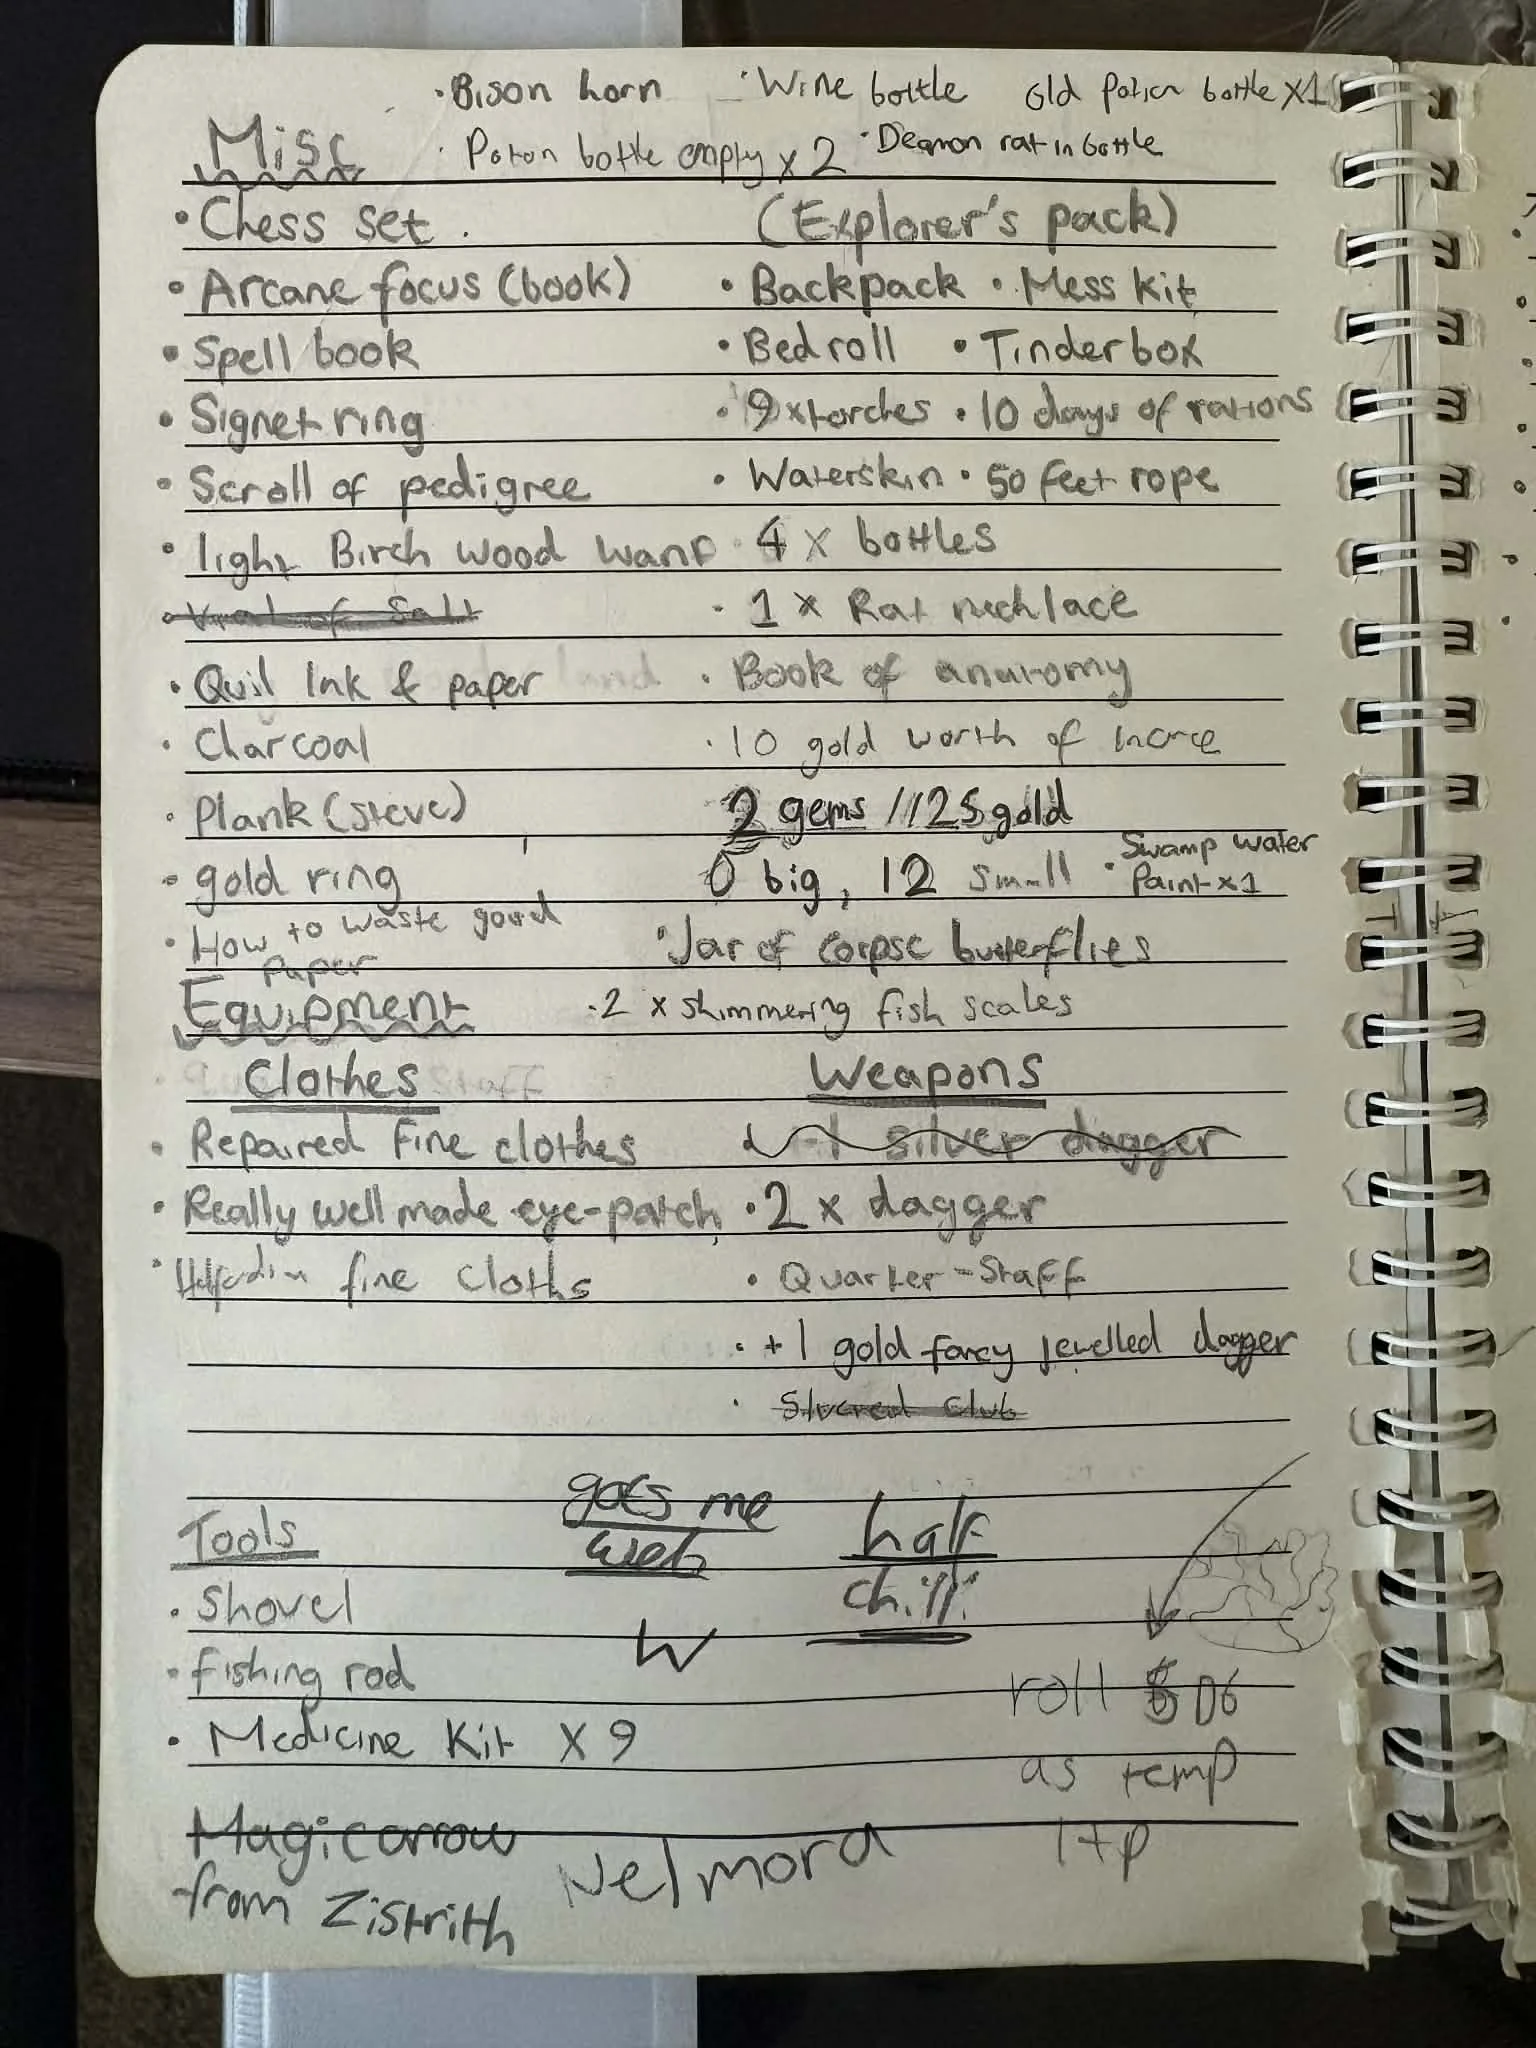 ·Bison horn ·Wine bottle Old Potion bottle X1
Misc · Poton bottle empty x 2 ·Deamon rat in bottle
•Chess set. (Explorer's pack)
•Arcane focus (book) •Backpack •Mess kit
•Spell book •Bed roll •Tinder box
•Signet ring •9 x torches •10 days of rations
•Scroll of pedigree •Waterskin •50 feet rope
•light Birch wood wand •4 x bottles
•Vial of Salt •1 x Rat necklace
•Quil Ink & paper •Book of anatomy
•Charcoal ·10 gold worth of
•Plank (steve) 2 gems //125 gold
•gold ring 0 big, 12 small •Swamp water
Paint x1
•How to waste good
paper •Jar of corpse butterflies
Equipment ·2 x shimmering fish scales
Clothes Weapons
•Repaired fine clothes • -1 silver dagger
•Really well made eye-patch •2 x dagger
• fine cloths •Quarter-Staff
• +1 gold fancy jewelled dagger
• Silvered Club
goes me
web half
chilli
Tools
•Shovel
W
•fishing rod
roll 6 D6
•Medicine Kit X 9
as temp
Magic arrow
from Zistrith
Nelmora